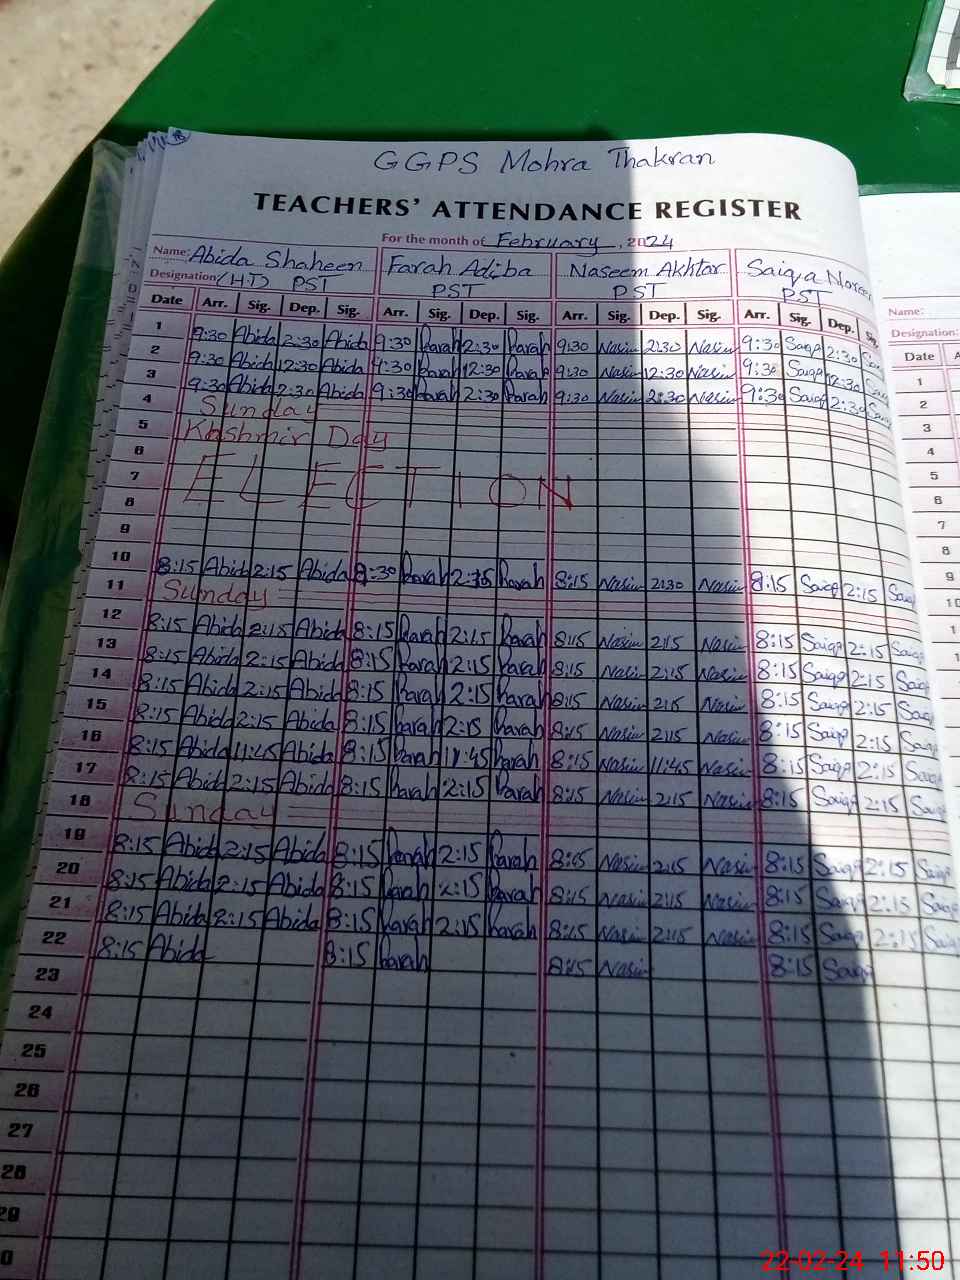 GGPS Mohra Thakran
TEACHERS' ATTENDANCE REGISTER
For the month of February, 2024
Name: Abida Shaheen Farah Adiba Naseem Akhtar Saiqa Noreen
Designation (H.T) PST PST PST PST
Date Arr. Sig. Dep. Sig. Arr. Sig. Dep. Sig. Arr. Sig. Dep. Sig. Arr. Sig. Dep. Sig.
1 9:30 Abida 2:30 Abida 9:30 Farah 2:30 Farah 9:30 Nasim 2:30 Nasim 9:30 Saiqa 2:30
2 9:30 Abida 12:30 Abida 9:30 Farah 12:30 Farah 9:30 Nasim 12:30 Nasim 9:30 Saiqa 12:30
3 9:30 Abida 2:30 Abida 9:30 Farah 2:30 Farah 9:30 Nasim 2:30 Nasim 9:30 Saiqa 2:30
4 Sunday
5 Kashmir Day
6
7 ELECTION
8
9
10 8:15 Abida 2:15 Abida 8:30 Farah Farah 8:15 Nasim 2:30 Nasim 8:15 Saiqa 2:15 Saiqa
11 Sunday
12 8:15 Abida 2:15 Abida 8:15 Farah 2:15 Farah 8:15 Nasim 2:15 Nasim 8:15 Saiqa 2:15 Saiqa
13 8:15 Abida 2:15 Abida 8:15 Farah 2:15 Farah 8:15 Nasim 2:15 Nasim 8:15 Saiqa 2:15 Saiqa
14 8:15 Abida 2:15 Abida 8:15 Farah 2:15 Farah 8:15 Nasim 2:15 Nasim 8:15 Saiqa 2:15 Saiqa
15 8:15 Abida 2:15 Abida 8:15 Farah 2:15 Farah 8:15 Nasim 2:15 Nasim 8:15 Saiqa 2:15 Saiqa
16 8:15 Abida 11:45 Abida 8:15 Farah 11:45 Farah 8:15 Nasim 11:45 Nasim 8:15 Saiqa 2:15 Saiqa
17 8:15 Abida 2:15 Abida 8:15 Farah 2:15 Farah 8:15 Nasim 2:15 Nasim 8:15 Saiqa 2:15 Saiqa
18 Sunday
19 8:15 Abida 2:15 Abida 8:15 Farah 2:15 Farah 8:15 Nasim 2:15 Nasim 8:15 Saiqa 2:15 Saiqa
20 8:15 Abida 2:15 Abida 8:15 Farah 2:15 Farah 8:15 Nasim 2:15 Nasim 8:15 Saiqa 2:15 Saiqa
21 8:15 Abida 2:15 Abida 8:15 Farah 2:15 Farah 8:15 Nasim 2:15 Nasim 8:15 Saiqa 2:15 Saiqa
22 8:15 Abida 8:15 Farah 8:15 Nasim 8:15 Saiqa
23
24
25
26
27
28
29
Name:
Designation:
Date
1
2
3
4
5
6
7
8
9
10
22-02-24 11:50